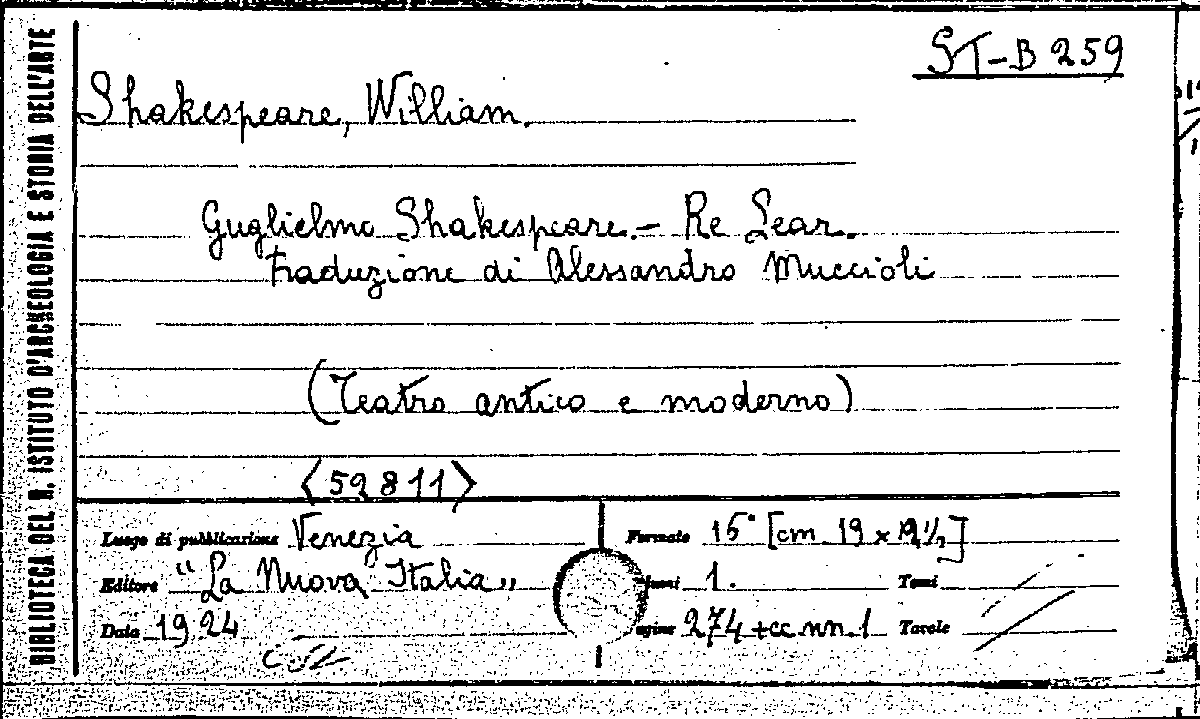 ST-B 259
BIBLIOTECA DEL R. ISTITUTO D'ARCHEOLOGIA E STORIA DELL'ARTE
Shakespeare, William.
Guglielmo Shakespeare.- Re Lear.
Traduzione di Alessandro Muccioli
(Teatro antico e moderno)
<59811>
Luogo di pubblicazione Venezia
Formato 16° [cm 19 x 12½]
Editore "La Nuova Italia"
1. Tomi
Data 1924
274 + cc. nn. 1 Tavole